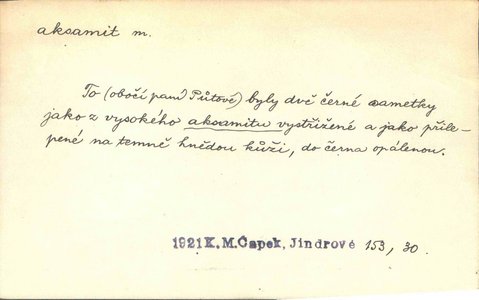 aksamit m.
To (obočí paní Půtové) byly dvě černé sametky
jako z vysokého aksamitu vystřižené a jako přile-
pené na temně hnědou kůži, do černa opálenou.
1921 K. M. Čapek, Jindrové 153, 30.